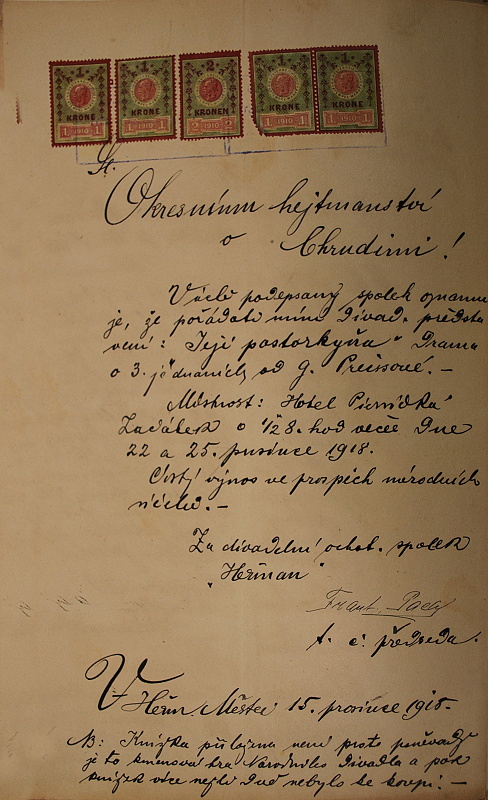 1 1 2 1 1
KRONE KRONE KRONEN KRONE KRONE
1 1910 1 1 1910 1 2 1910 2 1 1910 1 1 1910 1
Sl.
Okresnímu hejtmanství
v Chrudimi!
Uctě podepsaný spolek oznamu
je, že pořádati míní Divad. předsta
vení: Její pastorkyňa" Drama
o 3. jednáních od G. Preissové. —
Místnost: Hotel
Začátek o 1/28. hod večer Dne
22 a 25. prosince 1918.
Čistý výnos ve prospěch národních
—
Za divadelní ochot. spolek
„Heřman"
Frant.
t. č. předseda.
V Heřm Městci 15. prosince 1918.
NB: Knížka přiložena není proto poněvadž
je to kmenová hra Národního Divadla a pak
knížek více nežli Dvě nebylo ke koupi. —